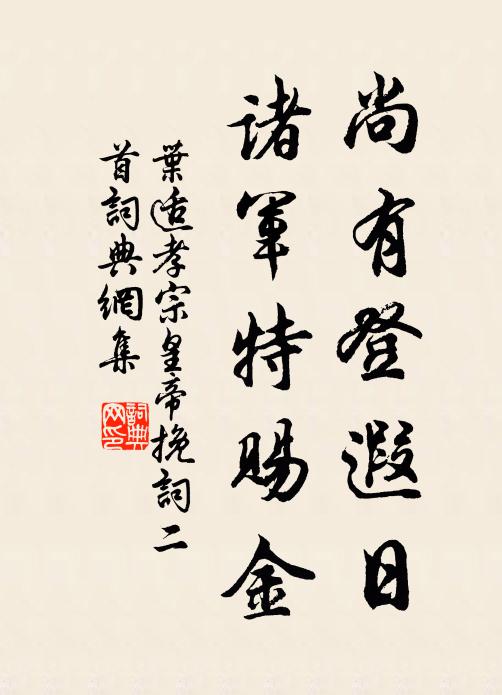 尚有登遐日
诸军特赐金
葉适孝宗皇帝挽詞二
首詞典網集
詞典
网印